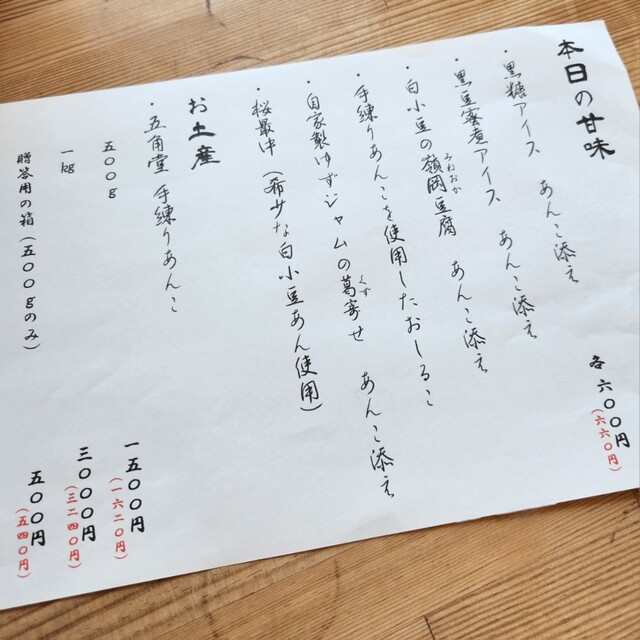 本日の甘味
各六〇〇円
(六六〇円)
・黒糖アイス あんこ添え
・黒豆蜜煮アイス あんこ添え
・白小豆の嶺岡豆腐 あんこ添え
みねおか
・手練りあんこを使用したおしるこ
・自家製ゆずジャムの葛寄せ あんこ添え
くず
・桜最中(希少な白小豆あん使用)
お土産
・五角堂 手練りあんこ
五〇〇g 一五〇〇円
(一六二〇円)
一kg 三〇〇〇円
(三二四〇円)
贈答用の箱(五〇〇gのみ) 五〇〇円
(五四〇円)